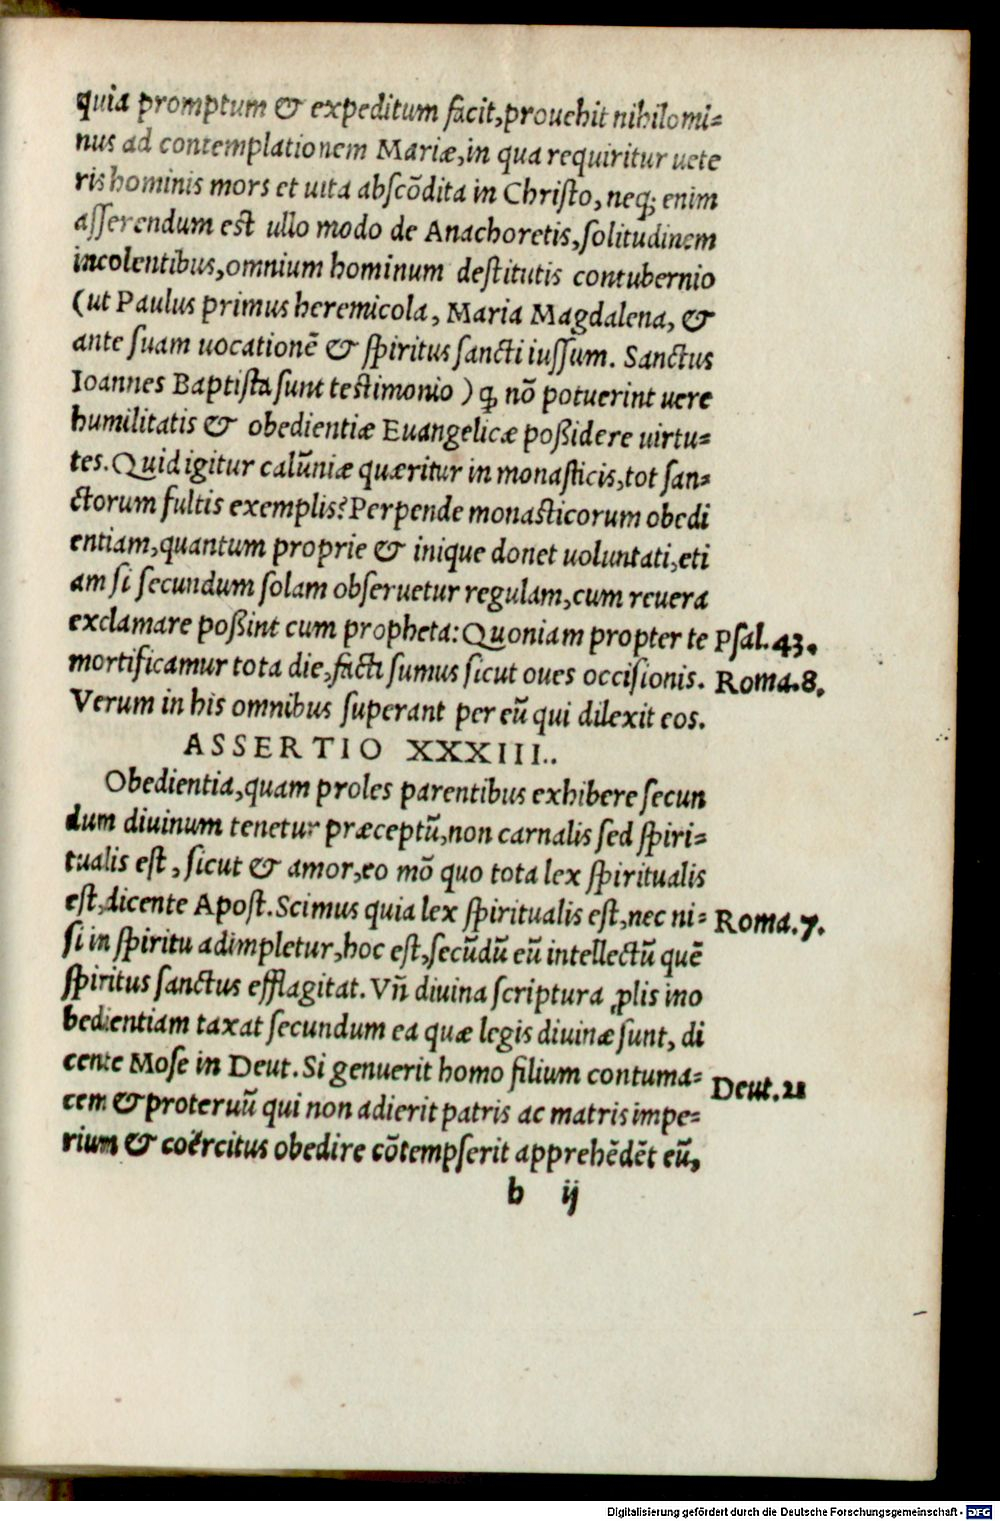 quia promptum & expeditum facit, prouehit nihilomi=
nus ad contemplationem Mariæ, in qua requiritur uete
ris hominis mors et uita abscõdita in Christo, neq; enim
asserendum est ullo modo de Anachoretis, solitudinem
incolentibus, omnium hominum destitutis contubernio
(ut Paulus primus heremicola, Maria Magdalena, &
ante suam uocationẽ & spiritus sancti iussum. Sanctus
Ioannes Baptista sunt testimonio) ꝙ nõ potuerint uere
humilitatis & obedientiæ Euangelicæ poßidere uirtu=
tes. Quid igitur calũniæ quæritur in monasticis, tot san=
ctorum fultis exemplis? Perpende monasticorum obedi
entiam, quantum proprie & inique donet uoluntati, eti
am si secundum solam obseruetur regulam, cum reuera
exclamare poßint cum propheta: Quoniam propter te Psal. 43.
mortificamur tota die, facti sumus sicut oues occisionis. Roma. 8.
Verum in his omnibus superant per eũ qui dilexit eos.
ASSERTIO XXXIII..
Obedientia, quam proles parentibus exhibere secun
dum diuinum tenetur præceptũ, non carnalis sed spiri=
tualis est, sicut & amor, eo mõ quo tota lex spiritualis
est, dicente Apost. Scimus quia lex spiritualis est, nec ni= Roma. 7.
si in spiritu adimpletur, hoc est, secũdũ eũ intellectũ quẽ
spiritus sanctus efflagitat. Vñ diuina scriptura ꝓlis ino
bedientiam taxat secundum ea quæ legis diuinæ sunt, di
cente Mose in Deut. Si genuerit homo filium contuma= Deut. 21
cem & proteruũ qui non adierit patris ac matris impe=
rium & coërcitus obedire cõtempserit apprehẽdẽt eũ,
b ij
Digitalisierung gefördert durch die Deutsche Forschungsgemeinschaft - DFG